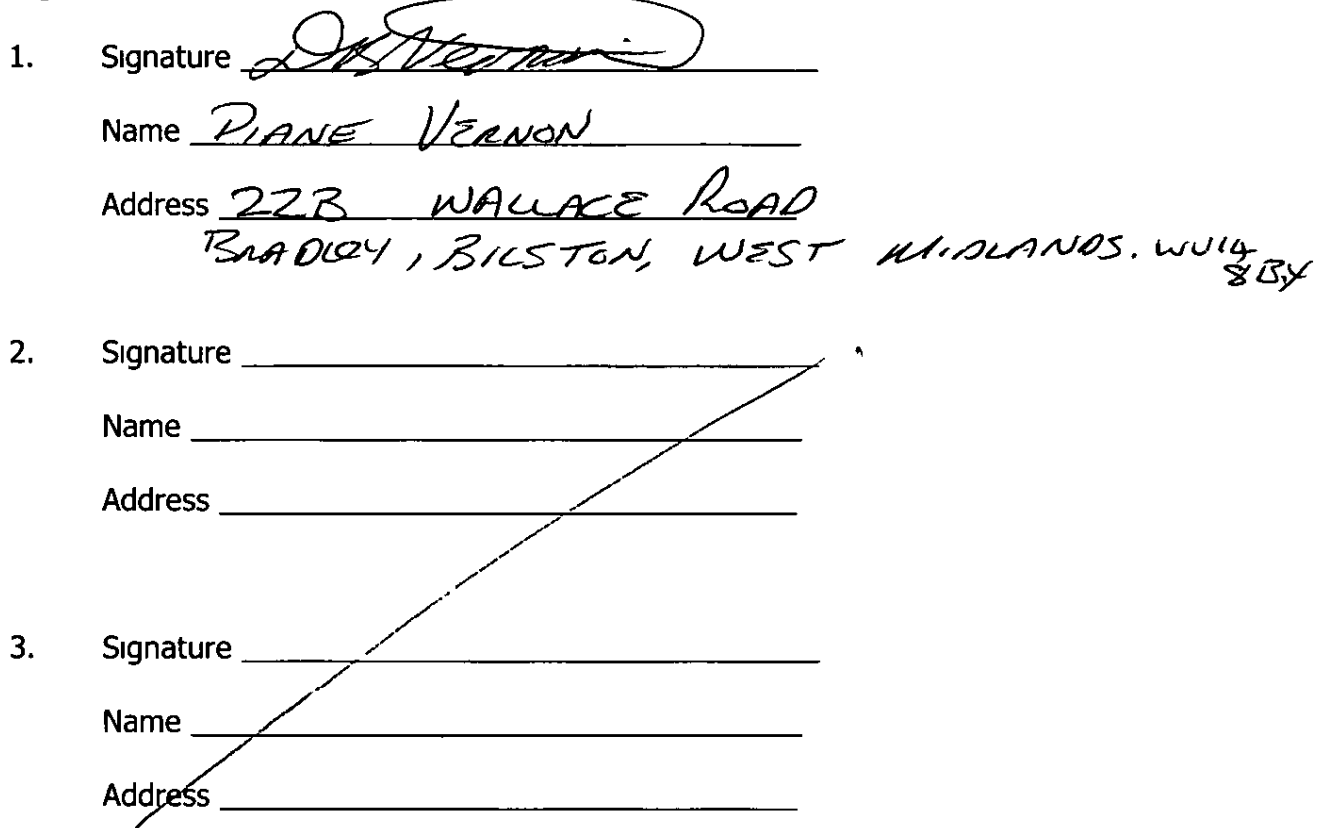 1. Signature D Vernon
Name DIANE VERNON
Address 22B WALLACE ROAD
BRADLEY, BILSTON, WEST MIDLANDS. WV14
8BY
2. Signature
Name
Address
3. Signature
Name
Address